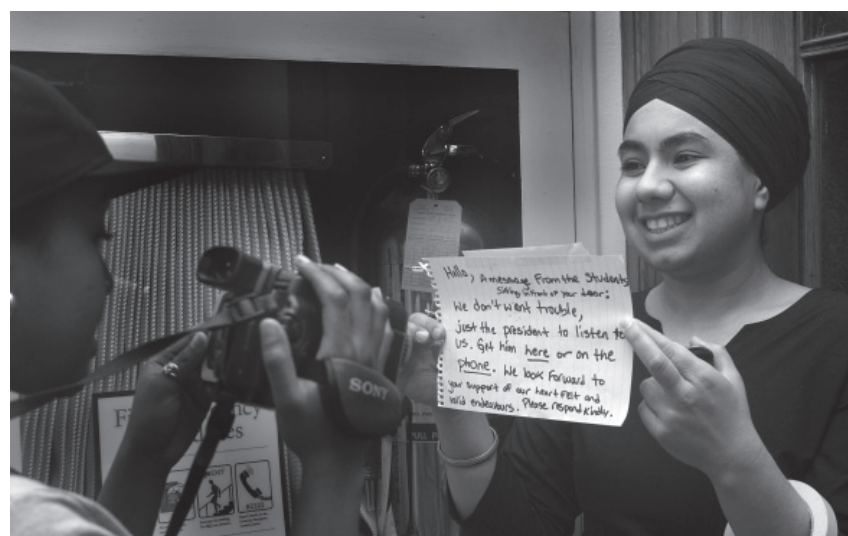 Hello, A message From the Students
Sitting infront of your door:
We don't want trouble,
just the president to listen to
us. Get him here or on the
phone. We look Forward to
your support of our heartfelt and
valid endeavours. Please respond kindly.
SONY
PULL